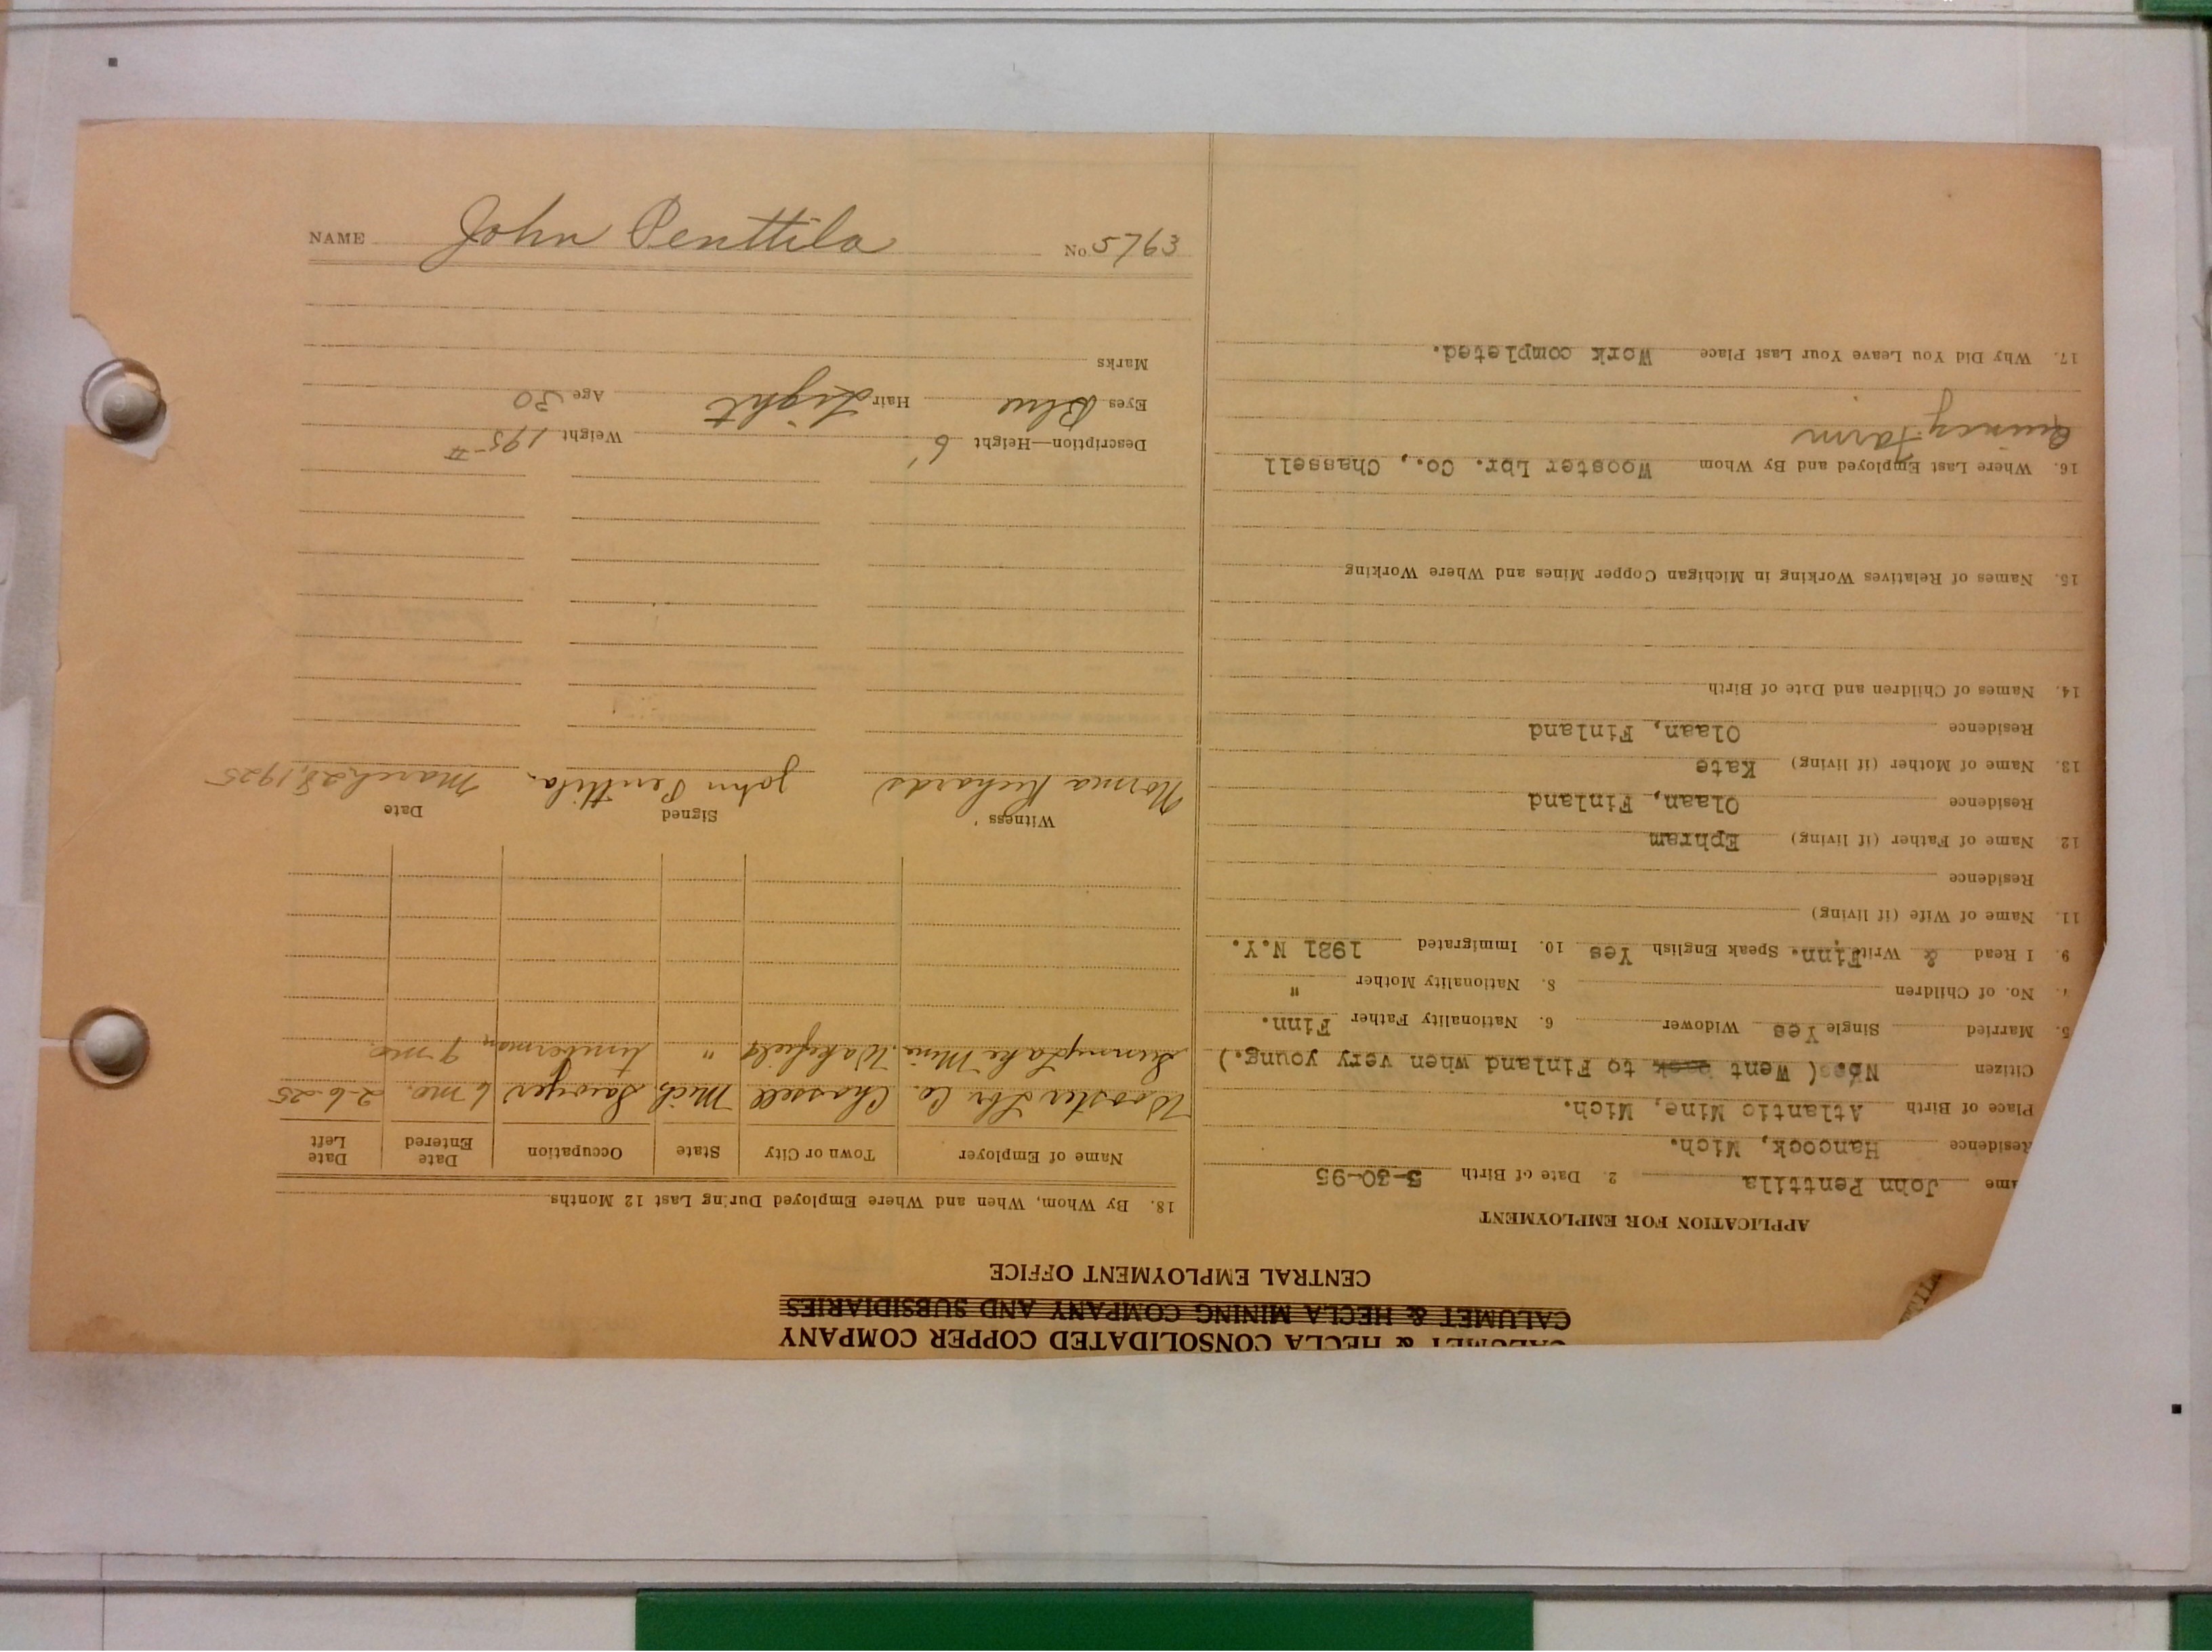 CALUMET & HECLA CONSOLIDATED COPPER COMPANY
CALUMET & HECLA MINING COMPANY AND SUBSIDIARIES
CENTRAL EMPLOYMENT OFFICE
APPLICATION FOR EMPLOYMENT
ame John Penttila 2. Date of Birth 3-30-95
Residence Hancock, Mich.
Place of Birth Atlantic Mine, Mich.
Citizen No. (Went to Finland when very young.)
5. Married Single Yes Widower 6. Nationality Father Finn.
7. No. of Children 8. Nationality Mother "
9. I Read & Write Finn. Speak English Yes 10. Immigrated 1921 N.Y.
11. Name of Wife (if living)
Residence
12. Name of Father (if living) Ephram
Residence Olaan, Finland
13. Name of Mother (if living) Kate
Residence Olaan, Finland
14. Names of Children and Date of Birth
15. Names of Relatives Working in Michigan Copper Mines and Where Working
16. Where Last Employed and By Whom Wooster Lbr. Co., Chassell
Quincy Farm
17. Why Did You Leave Your Last Place Work completed.
18. By Whom, When and Where Employed During Last 12 Months
Name of Employer Town or City State Occupation Date Entered Date Left
Wooster Lbr Co. Chassell Mich Sawyer 6 mo. 2-6-25
Sunny Lake Mine. Wakefield " timberman 9 mo.
Witness Signed Date
Norma Richards John Penttila. March 28, 1925
Description—Height 6' Weight 195 #
Eyes Blue Hair Light Age 30
Marks
NAME John Penttila No. 5763